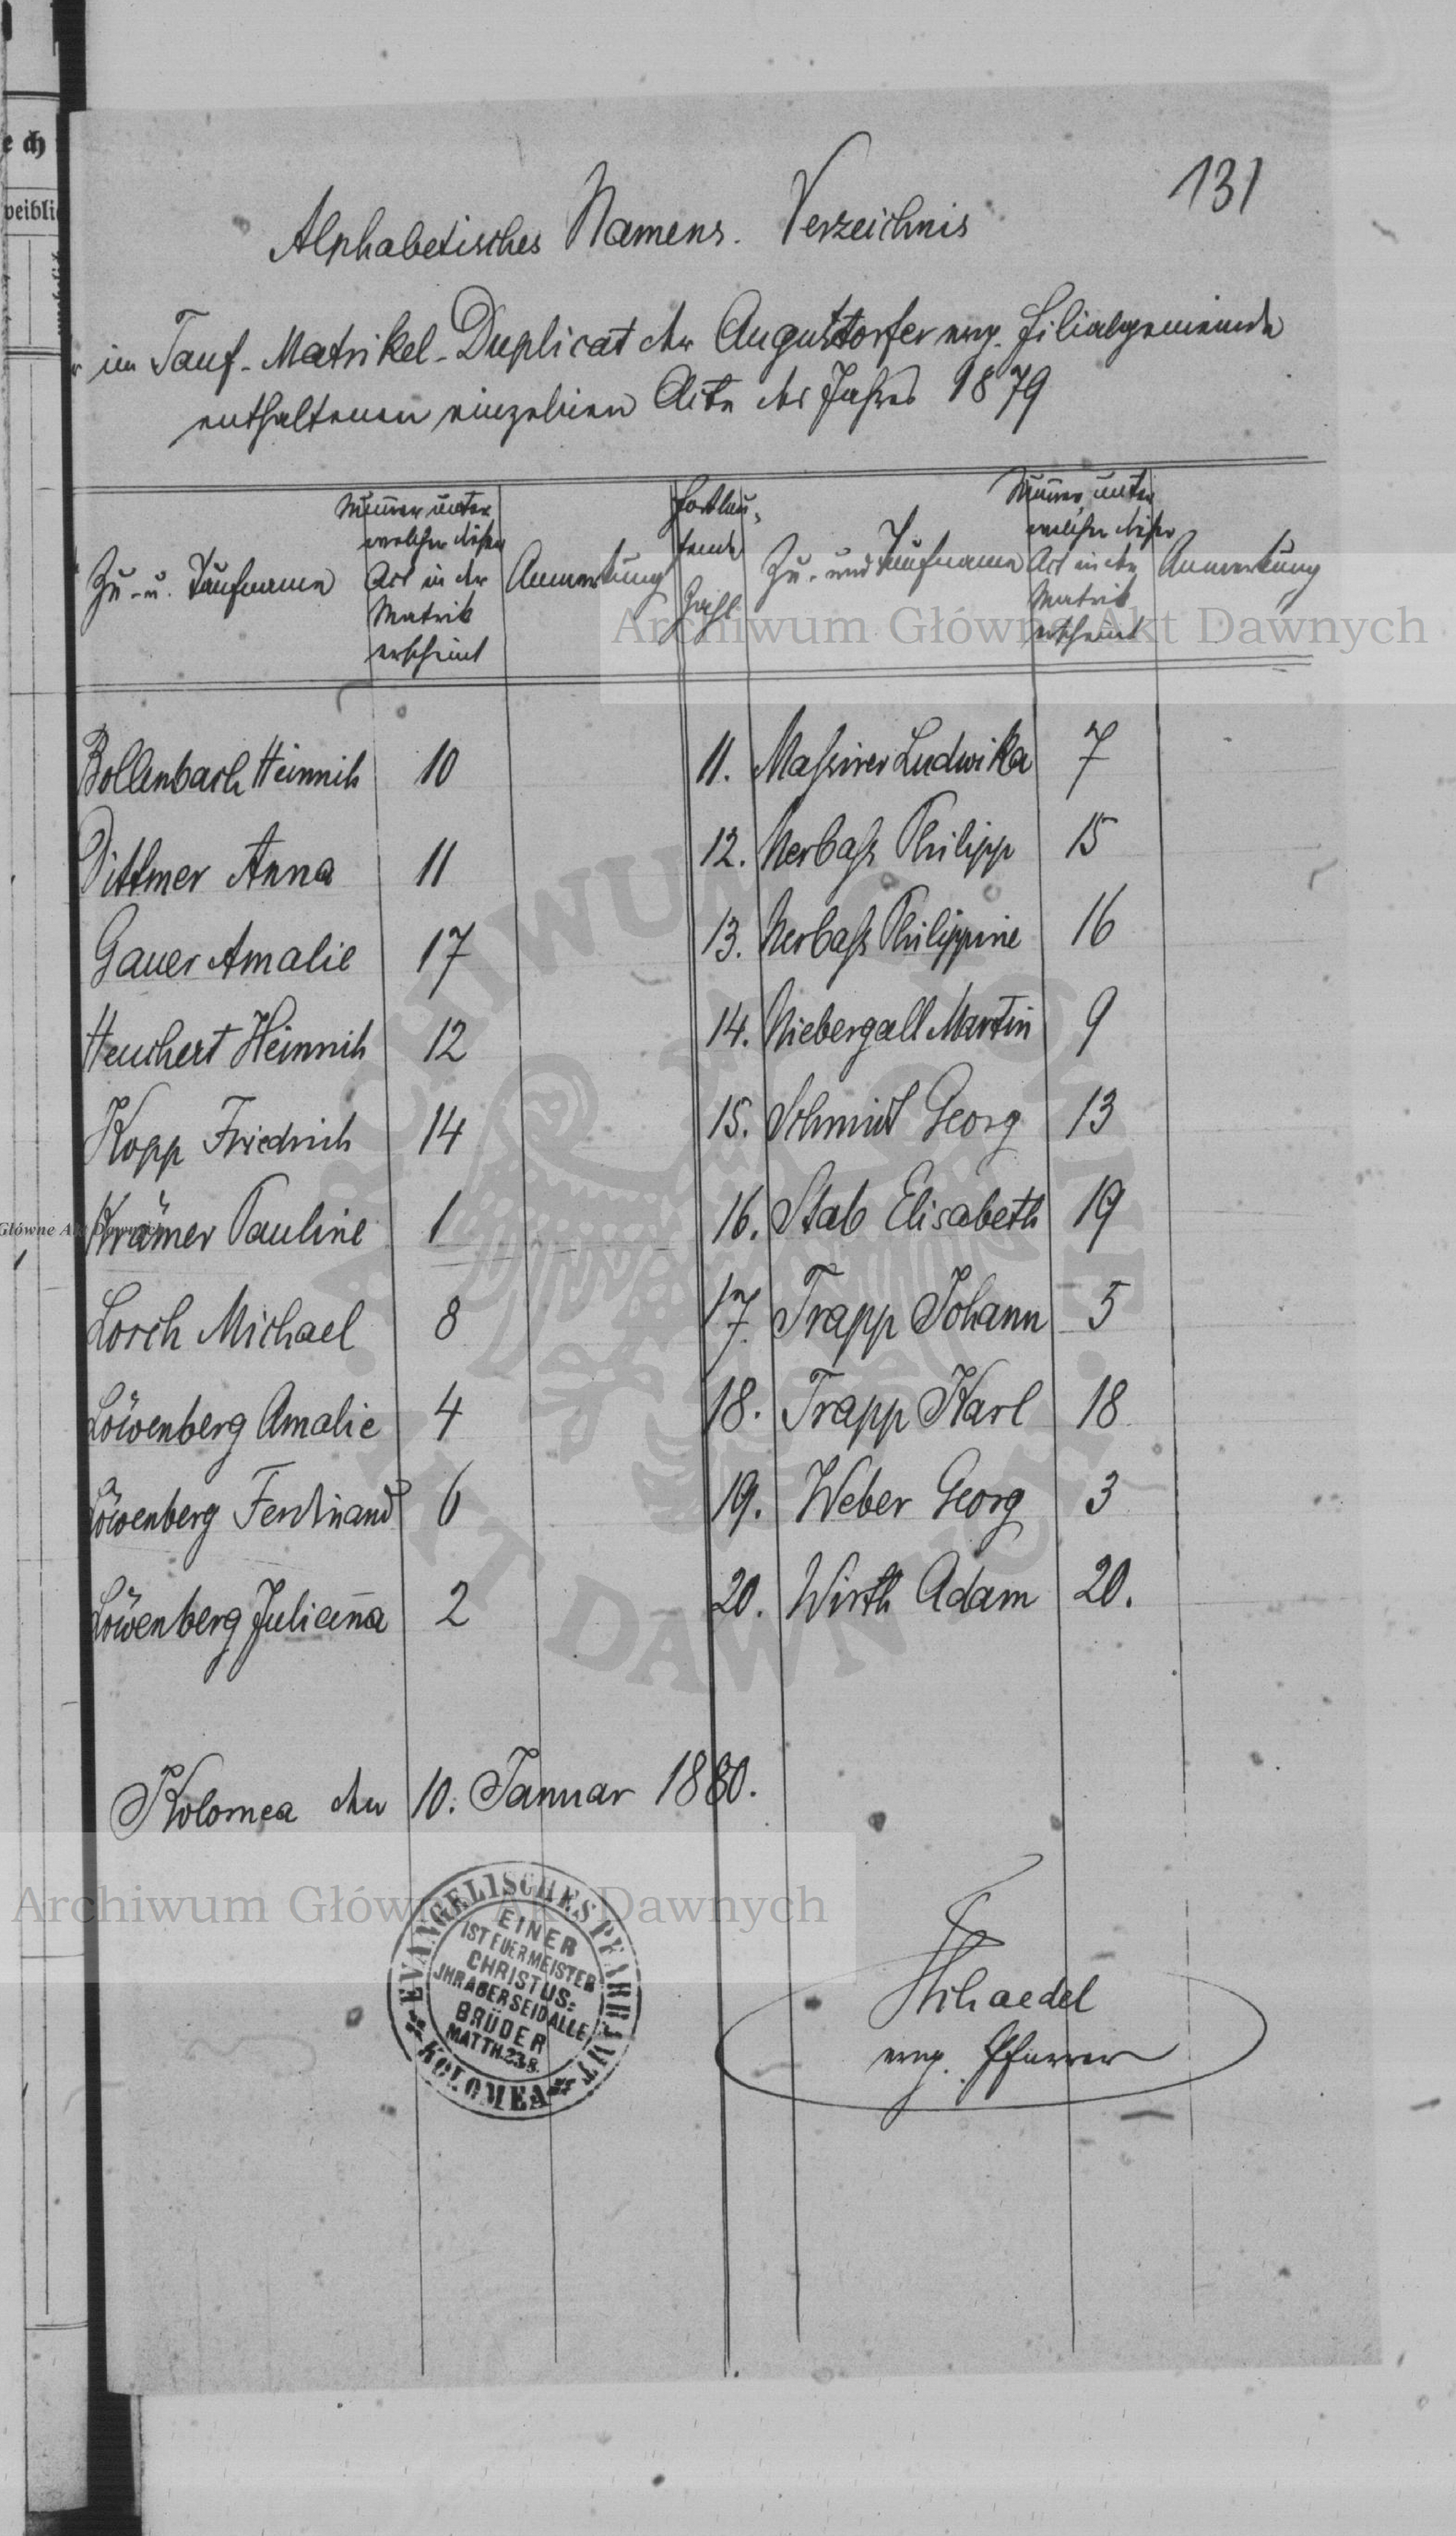 131
Alphabetisches Namens-Verzeichnis
r im Tauf-Matrikel-Duplicat der Augustdorfer evg. Filialgemeinde
enthaltenen einzelnen Acte des Jahres 1879
Zu- u. Taufname
Numer unter
welcher dieser
Act in der
Matrik
erscheint
Anmerkung
Fortlau-
fende
Zahl
Zu- und Taufname
Numer, unter
welcher dieser
Act in der
Matrik
erscheint
Anmerkung
Bollenbach Heinrich 10
Dittmer Anna 11
Gauer Amalie 17
Heuchert Heinrich 12
Kopp Friedrich 14
Krämer Pauline 1
Lorch Michael 8
Löwenberg Amalie 4
Löwenberg Ferdinand 6
Löwenberg Julian̄a 2
11. Maßirer Ludwika 7
12. Nerbaß Philipp 15
13. Nerbaß Philippine 16
14. Niebergall Martin 9
15. Schmidt Georg 13
16. Stab Elisabeth 19
17. Trapp Johann 5
18. Trapp Karl 18
19. Weber Georg 3
20. Wirth Adam 20.
Kolomea den 10. Januar 1880.
EVANGELISCHES PFARRAMT
KOLOMEA
EINER
IST EUER MEISTER
CHRISTUS:
JHR ABER SEID ALLE
BRÜDER
MATTH. 23 8.
Schaedel
evg. Pfarrer
e ch
weibli
Archiwum Główne Akt Dawnych
Archiwum Główne Akt Dawnych
Główne Akt Dawnych
ARCHIWUM GŁÓWNE
AKT DAWNYCH